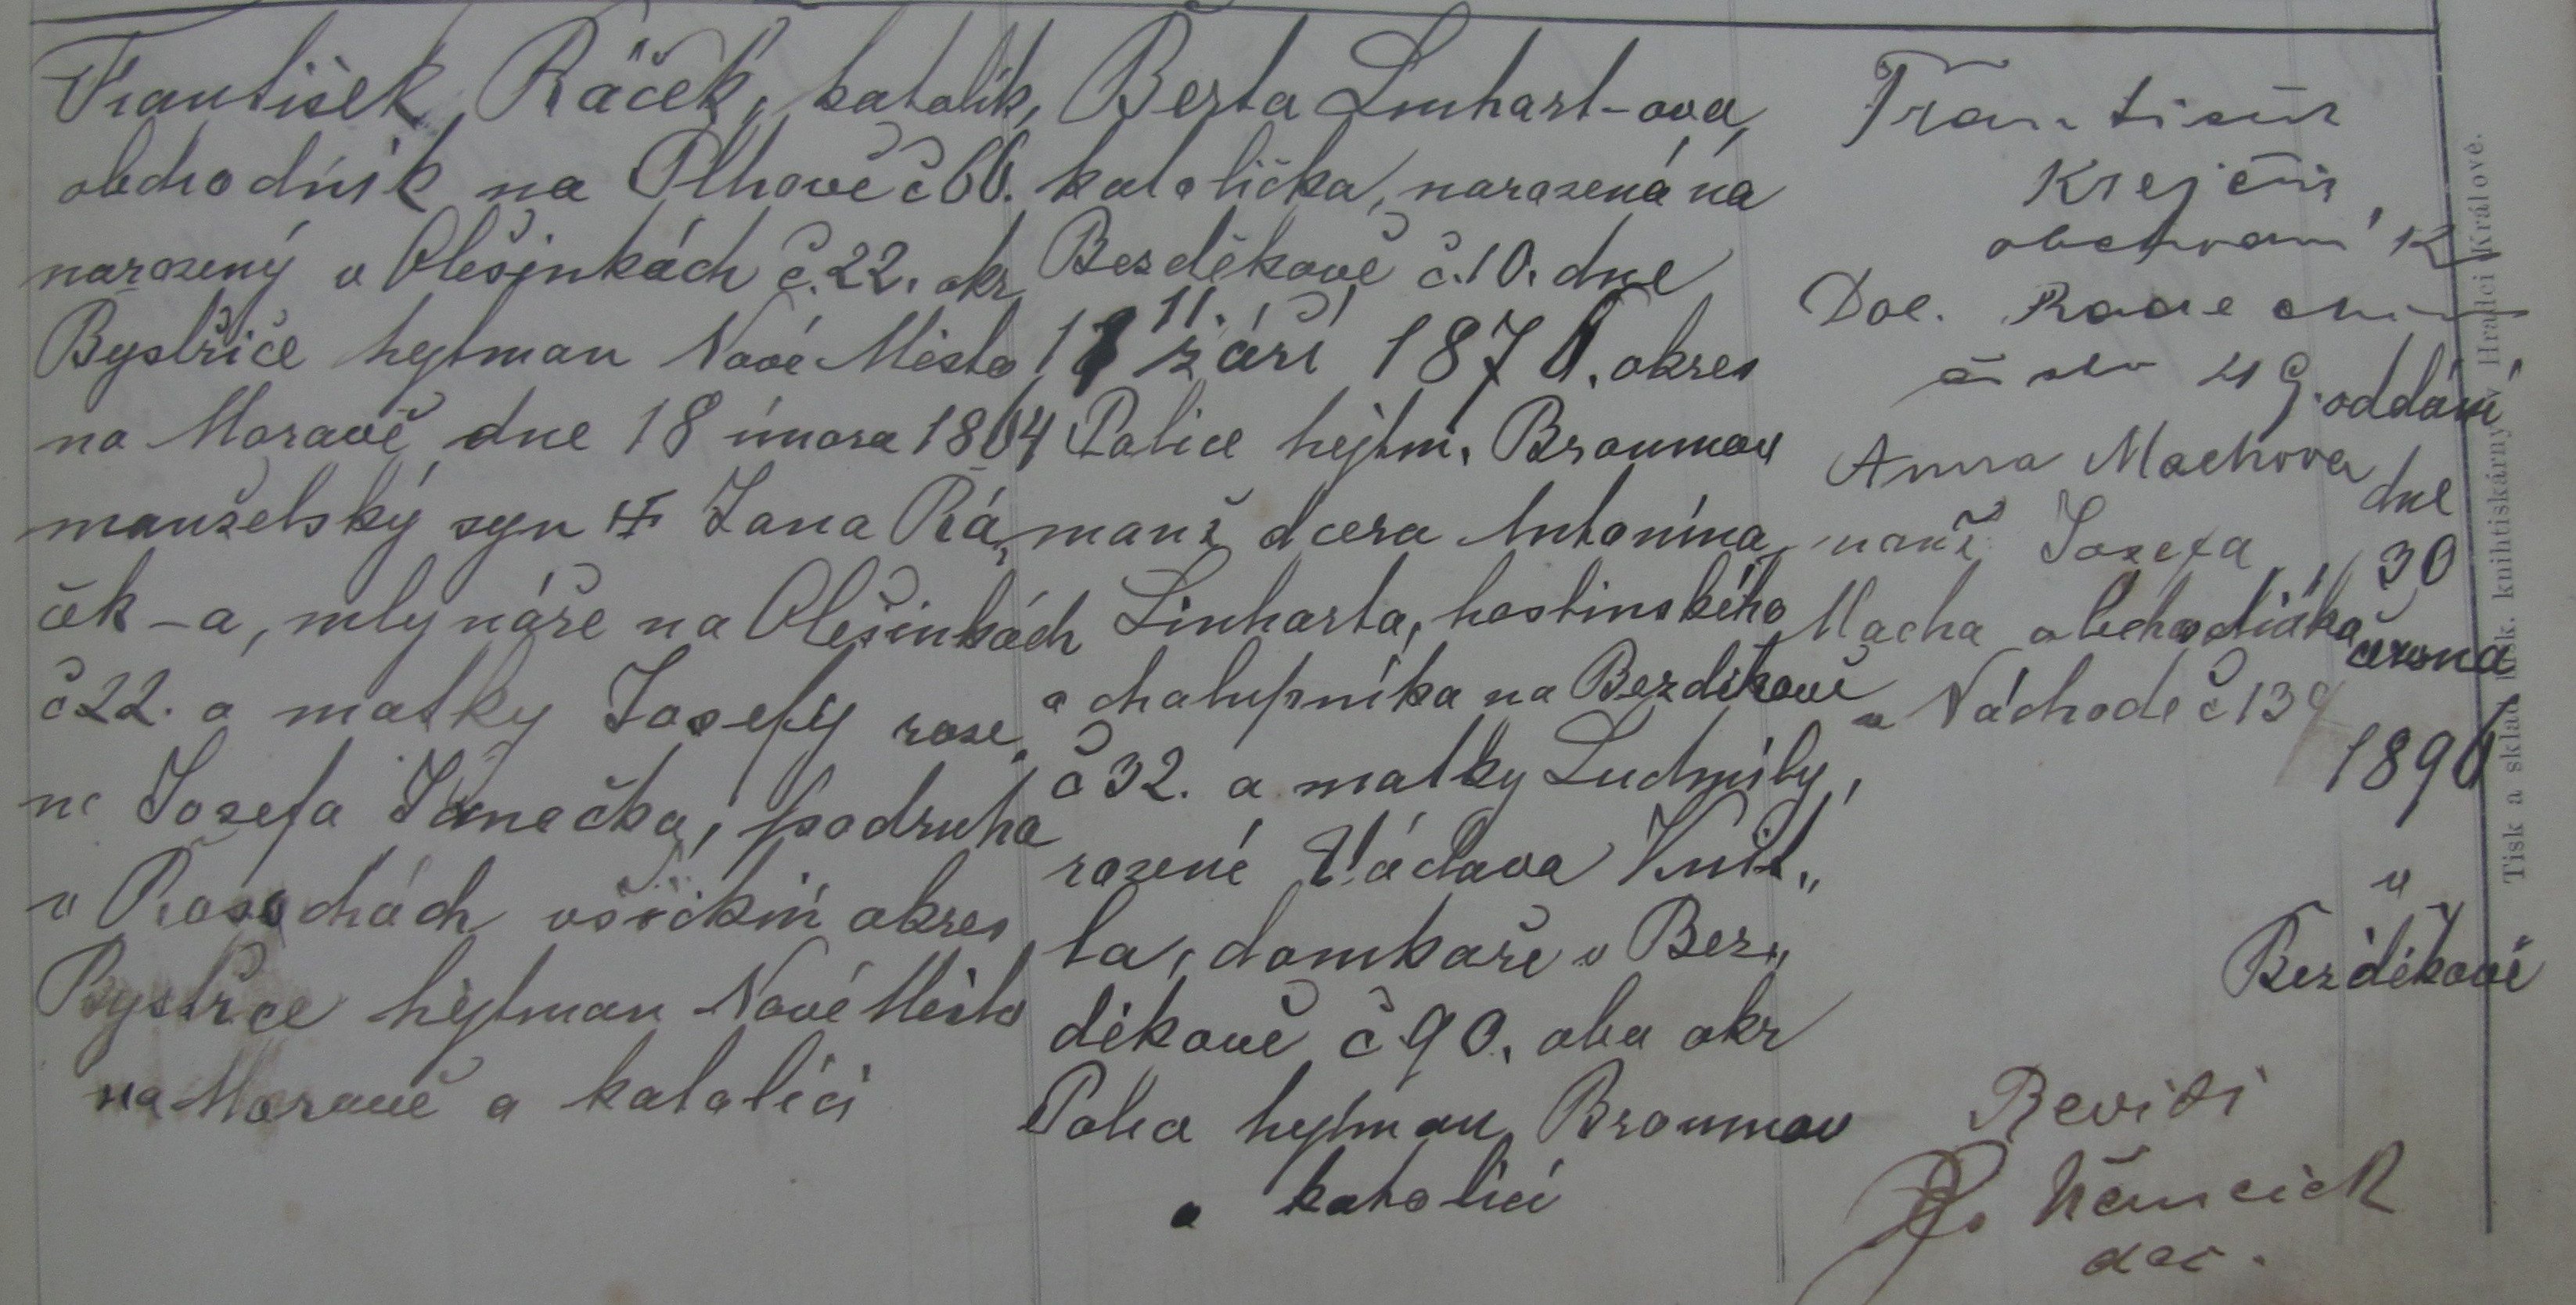 František Ráček, katolík,
obchodník na Plhově č 66.
narozený v Olešinkách č. 22. okr
Bystřice hejtman Nové Město
na Moravě, dne 18 února 1864
manželský syn Jana Rá„
ček-a, mlynáře na Olešinkách
č 22. a matky Josefy roze„
né Josefa Janečka, podruha
v Rosochách všickni okres
Bystřice hejtman Nové Město
na Moravě a katolíci
Berta Linhart-ova,
katolička, narozená na
Bezděkově č. 10. dne
11.
září 1876. okres
Police hejtm. Broumov
manž dcera Antonína
Linharta, hostinského
a chalupníka na Bezděkově
č 32. a matky Ludmily,
rozené Václava Knit„
la, domkaře v Bez„
děkově č 90. oba okr
Police hejtman Broumov
a katolíci
František
Krejčí
Dol.
číslo 49.
Anna Machova
manž Josefa
Macha obchodníka
v Náchodě č 134
oddáni
dne
30
června
1896
v
Bezděkově
Revidi
Němeček
Tisk a sklad knihtiskárny v Hradci Králové.